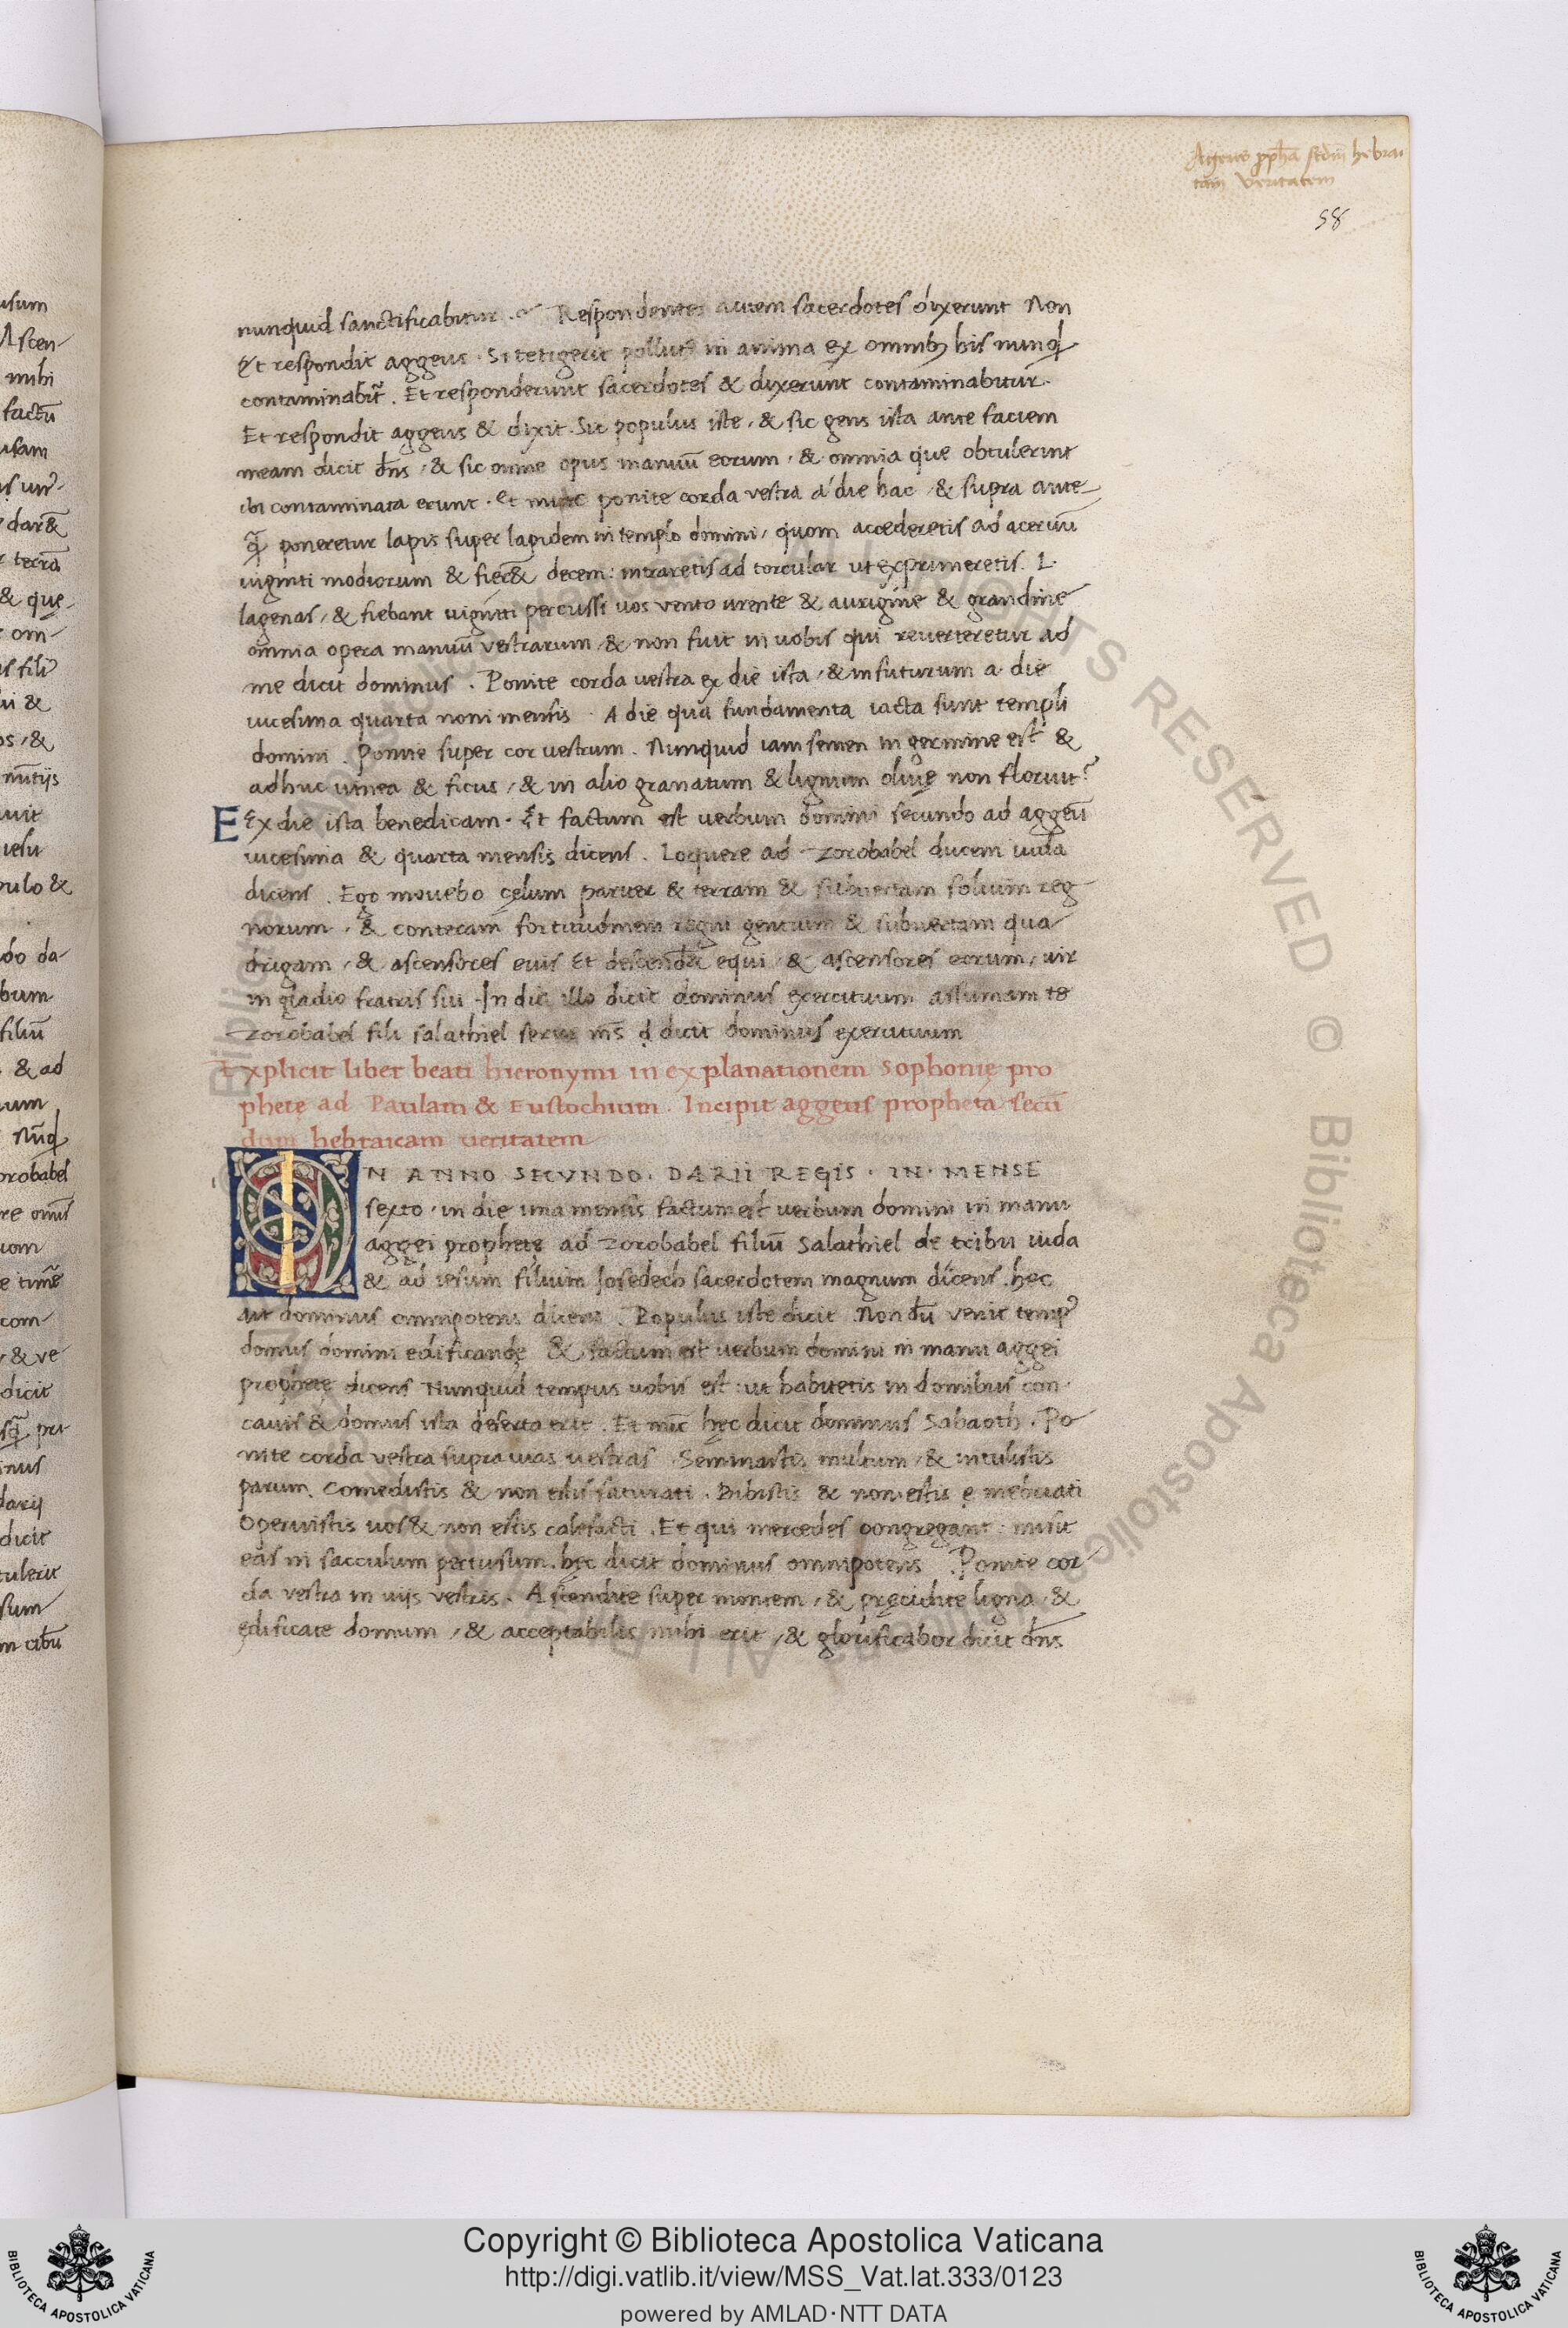 Aggeus ppħa scđm hebrai
cam veritatem
58
nunquid sanctificabitur. Respondentes autem sacerdotes dixerunt Non
Et respondit aggeus. Si tetigerit pollutꝰ in anima ex omnibꝫ his nunqd
contaminabit̃. Et responderunt sacerdotes & dixerunt contaminabitur.
Et respondit aggeus & dixit. Sic populus iste, & sic gens ista ante faciem
meam dicit dn̄s, & sic omne opus manuū eorum, & omnia que obtulerint
ibi contaminata erunt. Et nunc ponite corda vestra a die hac, & supra ante-
q̃ poneretur lapis super lapidem in templo domini, quom accederetis ad aceruū
uiginti modiorum & fier& decem: intraretis ad torcular ut exprimeretis. L
lagenas, & fiebant uiginti percussi uos vento urente & aurigine & grandine
omnia opera manuū vestrarum, & non fuit in uobis qui reuerteretur ad
me dicit dominus. Ponite corda vestra ex die ista, & in futurum a die
uicesima quarta noni mensis. A die qua fundamenta iacta sunt templi
domini. Ponite super cor uestrum. Nunquid iam semen in germine est &
adhuc uinea & ficus, & in alio granatum & lignum oliuę non floruit?
E Ex die ista benedicam. Et factum est uerbum domini secundo ad aggeū
uicesima & quarta mensis dicens. Loquere ad zorobabel ducem iuda
dicens. Ego mouebo cęlum pariter & terram & subuertam solium reg
norum, & conteram fortitudinem regni gentium & subuertam qua
drigam, & ascensores eius Et descendēt equi, & ascensores eorum, uir
in gladio fratris sui. In die illo dicit dominus exercituum assumam te
zorobabel fili salathiel serue m̄s ḍ dicit dominus exercituum
Explicit liber beati hieronymi in explanationem Sophonię pro
phetę ad Paulam & Eustochium. Incipit aggeus propheta secū
dum hebraicam ueritatem
IN ANNO SECVNDO. DARII REGIS. IN. MENSE
sexto, in die una mensis factum est uerbum domini in manu
aggei prophetę ad zorobabel filiū Salathiel de tribu iuda
& ad iesum filium Josedech sacerdotem magnum dicens. hęc
ait dominus omnipotens dicens. Populus iste dicit Nondū venit tempꝰ
domus domini edificandę & factum est uerbum domini in manu aggei
prophetę dicens Nunquid tempus uobis est: ut habitetis in domibus con
cauis & domus ista deserta erit. Et nūc hęc dicit dominus Sabaoth. Po
nite corda vestra supra uias uestras. Seminastis multum, & intulistis
parum. Comedistis & non estis saturati. Bibistis & non estis ę mebriati
Operuistis uos & non estis calefacti. Et qui mercedes congregant: misit
eas in sacculum pertusum. hęc dicit dominus omnipotens. Ponite cor
da vestra in uijs vestris. Ascendite super montem, & pręcidite ligna, &
ędificate domum, & acceptabilis mihi erit, & glorificabor dicit dn̄s
Copyright © Biblioteca Apostolica Vaticana
http://digi.vatlib.it/view/MSS_Vat.lat.333/0123
powered by AMLAD·NTT DATA
BIBLIOTECA APOSTOLICA VATICANA
BIBLIOTECA APOSTOLICA VATICANA